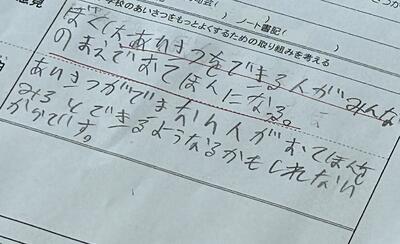 ノート書記(　　　)
学校のあいさつをもっとよくするための取り組みを考える
ぼくは、あいさつをできる人がみんな
のまえでおてほんになる。
あいさつができない人がおてほんを
みるとできるようなるかもしれない
からです。